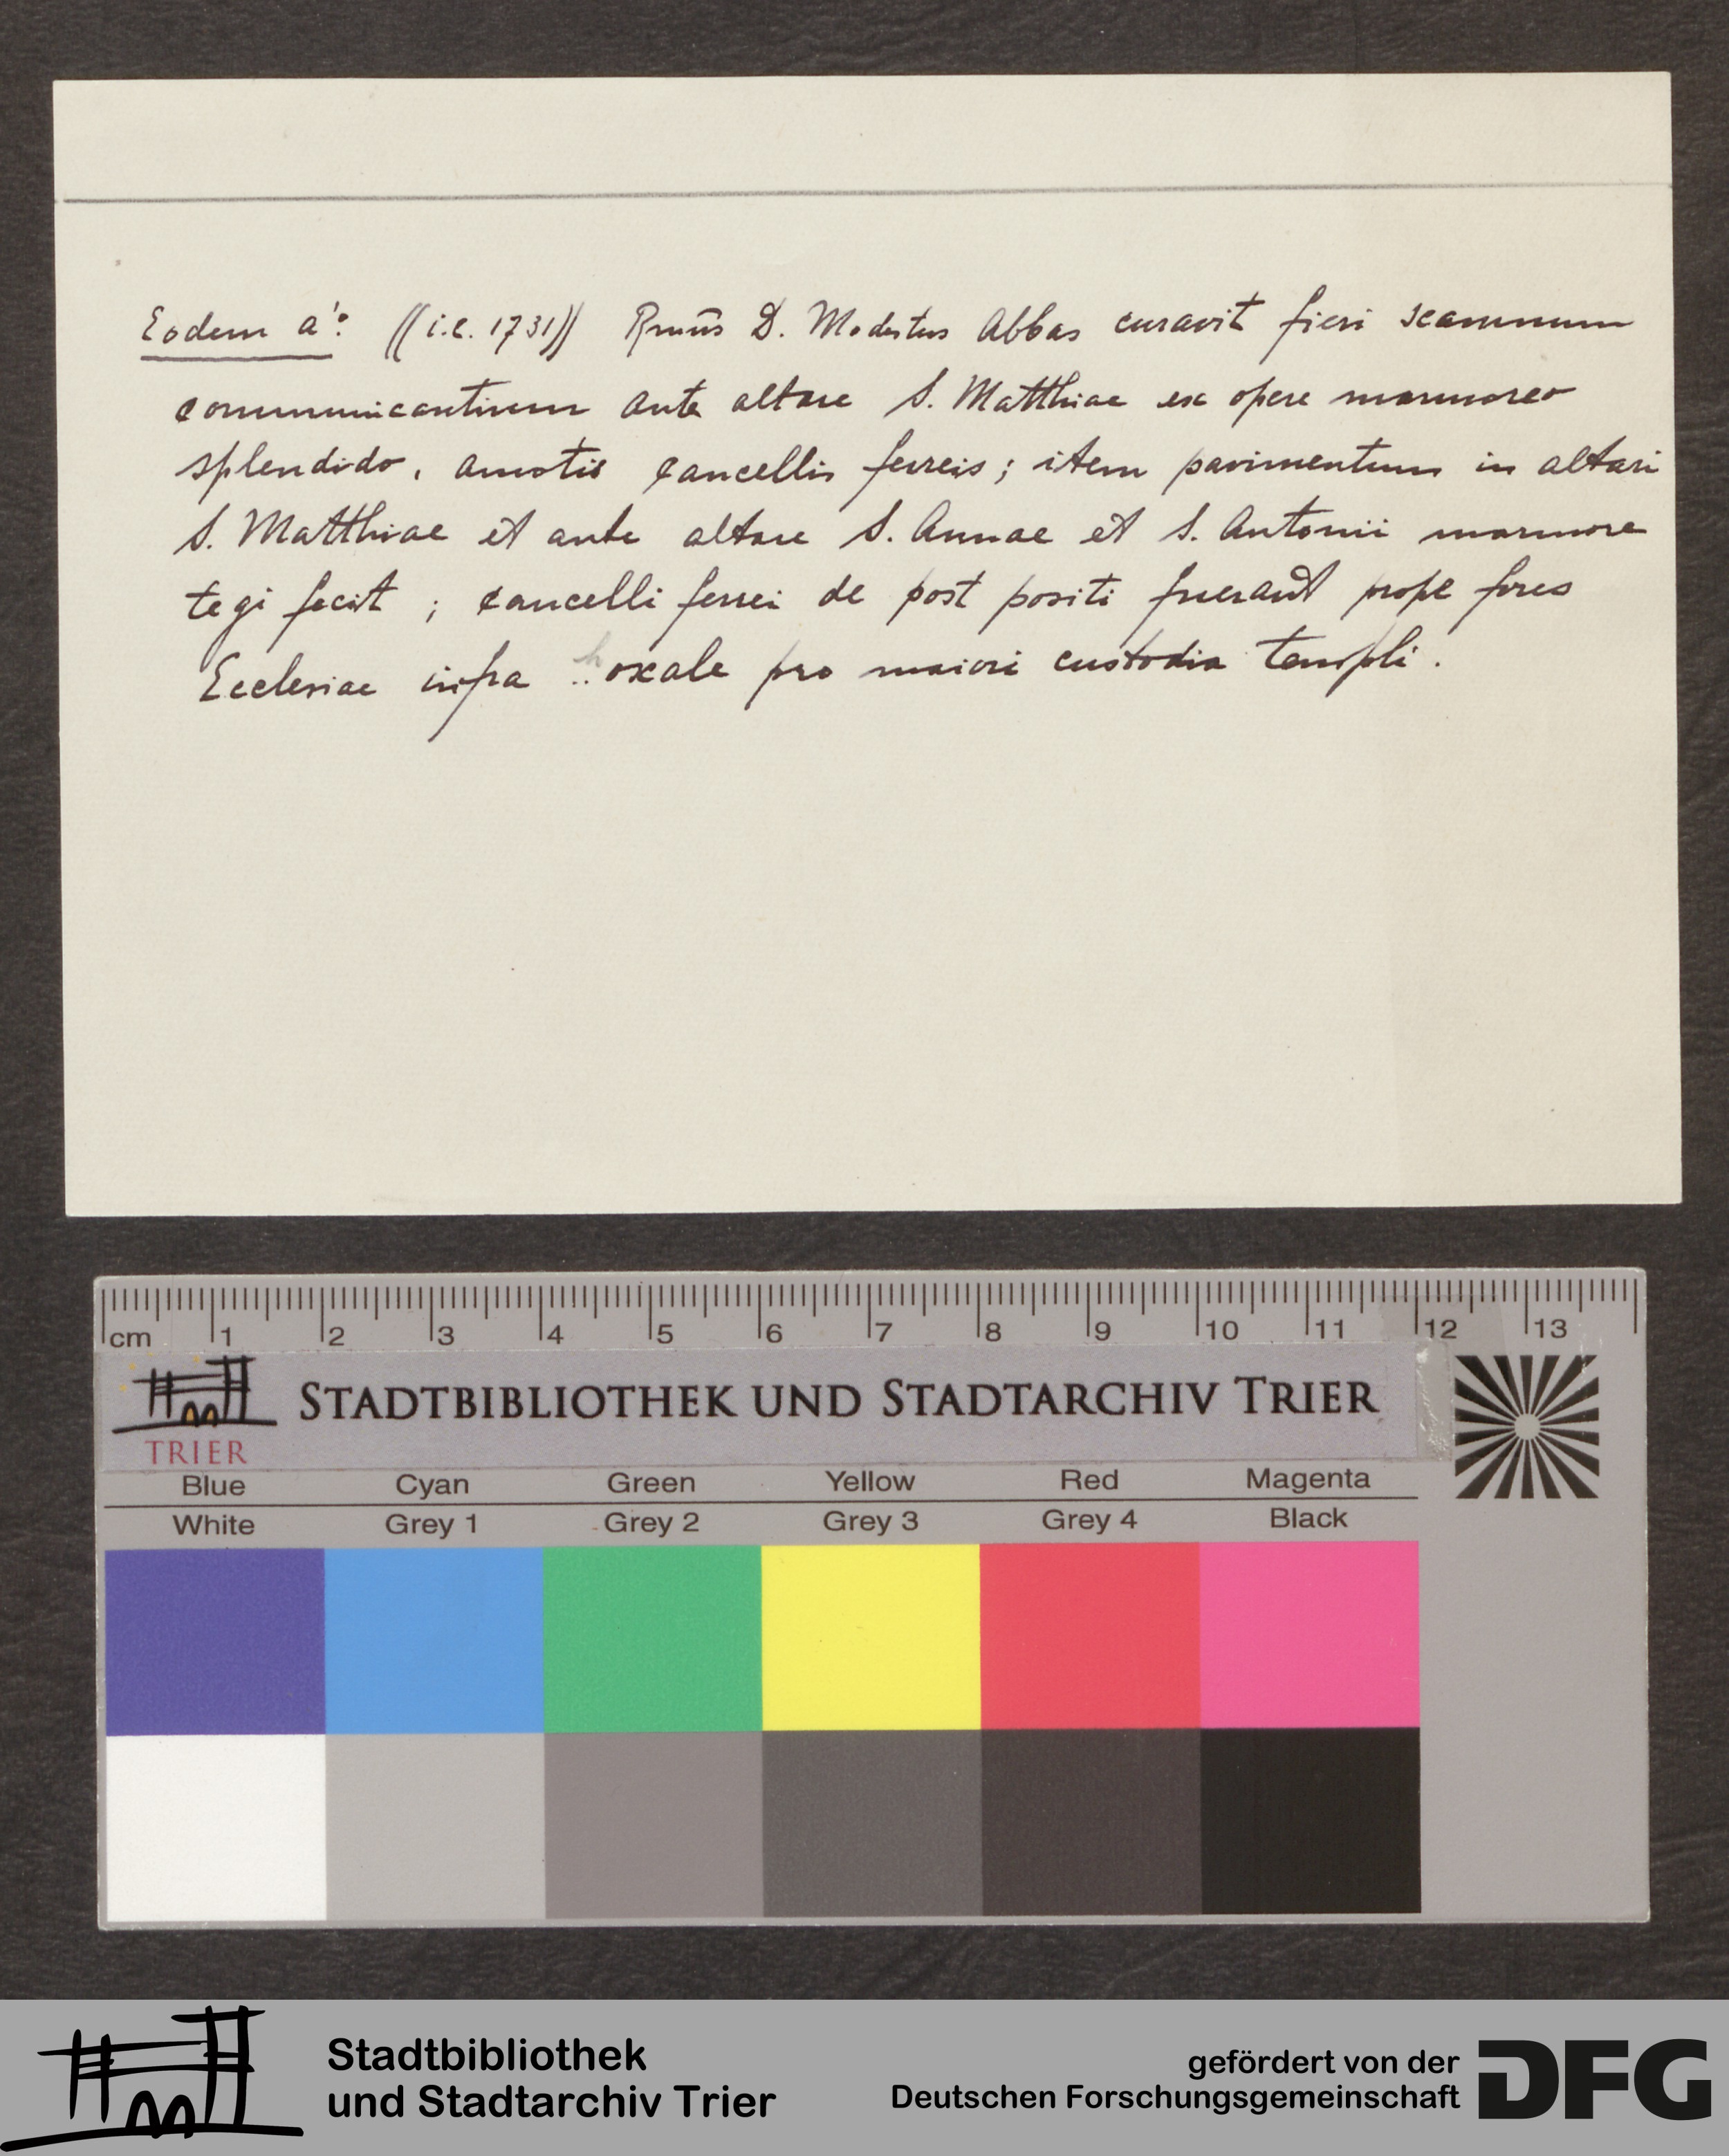 Eodem a°: ((i.e. 1731)) Rmūs D. Modestus Abbas curavit fieri scamnum
communicantium ante altare S. Matthiae ex opere marmoreo
splendido, amotis cancellis ferreis; item pavimentum in altari
S. Matthiae et ante altare S. Annae et S. Antonii marmore
tegi fecit ; cancelli ferrei de post positi fuerant prope fores
Ecclesiae infra ..oxale pro maiori custodia templi.
cm 1 2 3 4 5 6 7 8 9 10 11 12 13
STADTBIBLIOTHEK UND STADTARCHIV TRIER
TRIER
Blue Cyan Green Yellow Red Magenta
White Grey 1 Grey 2 Grey 3 Grey 4 Black
Stadtbibliothek
und Stadtarchiv Trier
gefördert von der
Deutschen Forschungsgemeinschaft
DFG